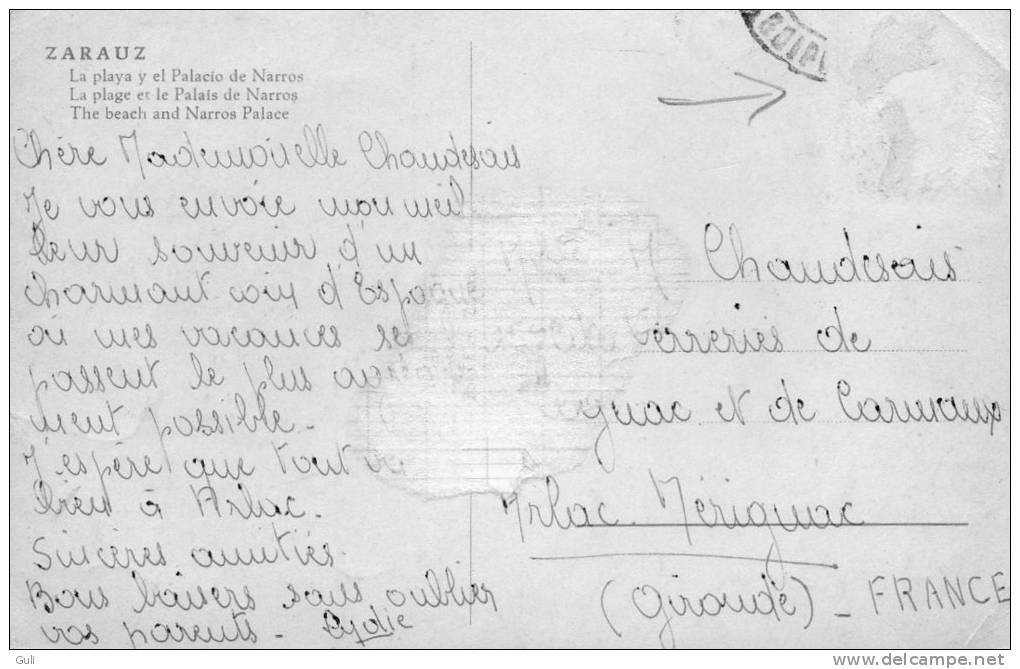 ZARAUZ
La playa y el Palacio de Narros
La plage et le Palais de Narros
The beach and Narros Palace
Chère Mademoiselle Chaudesais
Je vous envoie mon meil
leur souvenir d'un
charmant coin d'Espagne
où mes vacances se
passent le plus agréable
ment possible.
J'espère que tout va
bien à Arlac.
Sincères amitiés.
Bons baisers sans oublier
vos parents - Lydie
M Chaudesais
Verreries de
et de Carmaux
Arlac. Mérignac
(Gironde) - FRANCE
Guli
www.delcampe.net